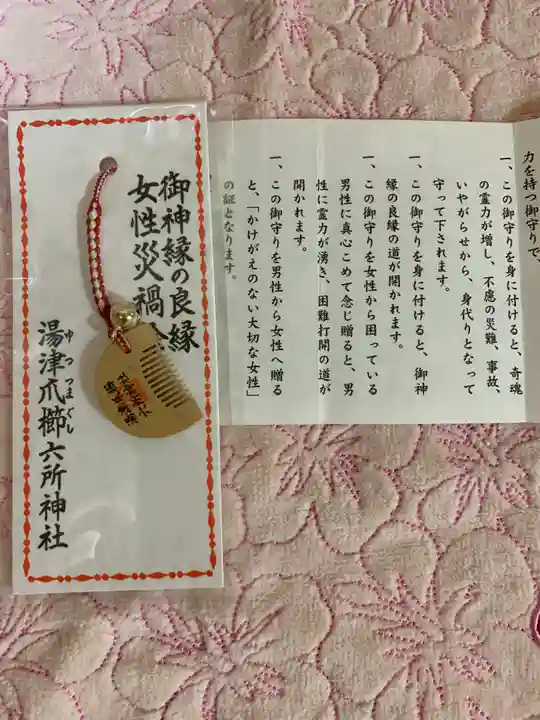 御神縁の良縁
女性災禍
湯津爪櫛六所神社
ゆつつまぐし
力を持つ御守りで、
一、この御守りを身に付けると、奇魂
の霊力が増し、不慮の災難、事故、
いやがらせから、身代りとなって
守って下されます。
一、この御守りを身に付けると、御神
縁の良縁の道が開かれます。
一、この御守りを女性から困っている
男性に真心こめて念じ贈ると、男
性に霊力が湧き、困難打開の道が
開かれます。
一、この御守りを男性から女性へ贈る
と、「かけがえのない大切な女性」
の証となります。